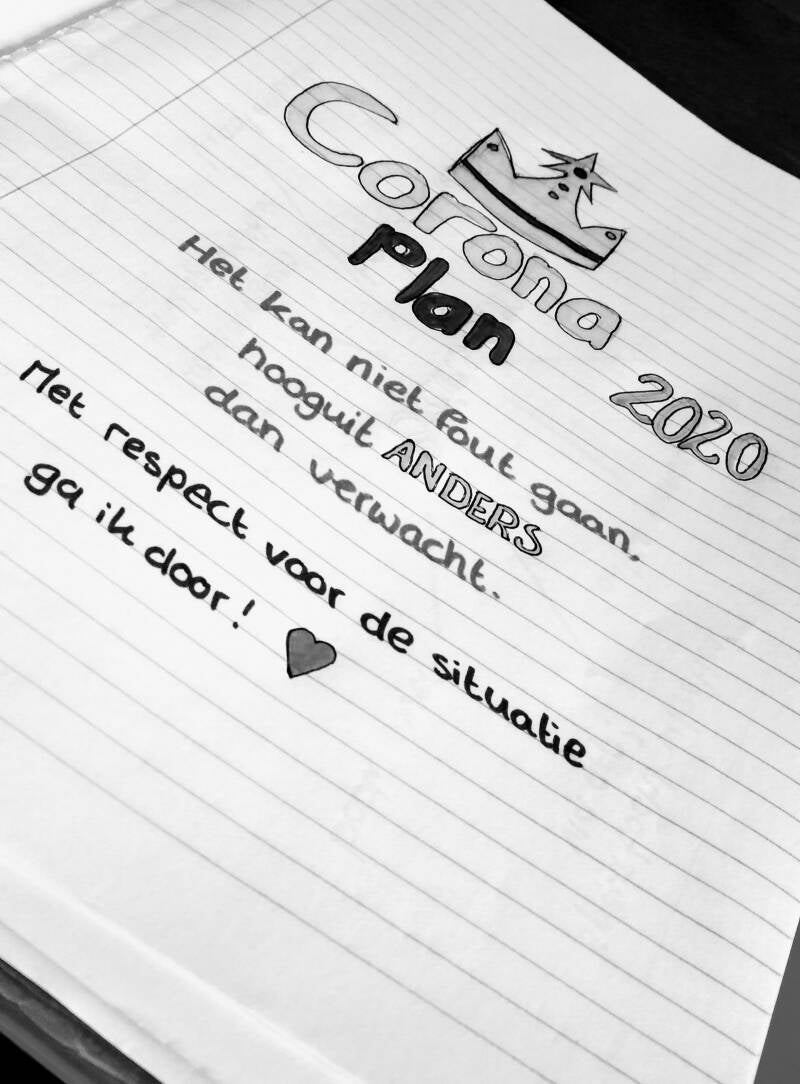 Corona
Plan
2020
Het kan niet fout gaan,
hooguit ANDERS
dan verwacht.
Met respect voor de situatie
ga ik door!